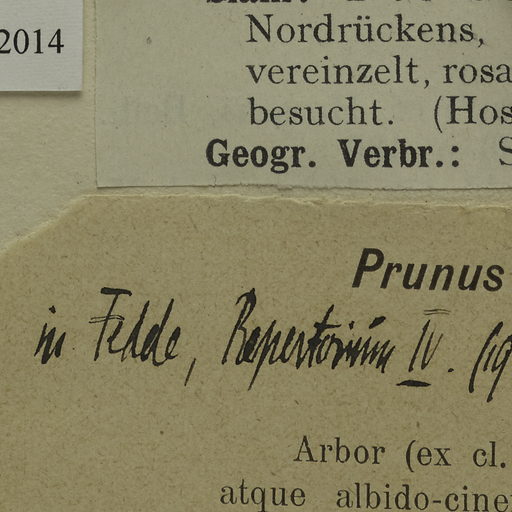 2014
Nordrückens,
vereinzelt, rosa
besucht. (Hos
Geogr. Verbr.: S
Prunus
in Fedde, Repertorium IV. (19
Arbor (ex cl.
atque albido-cine